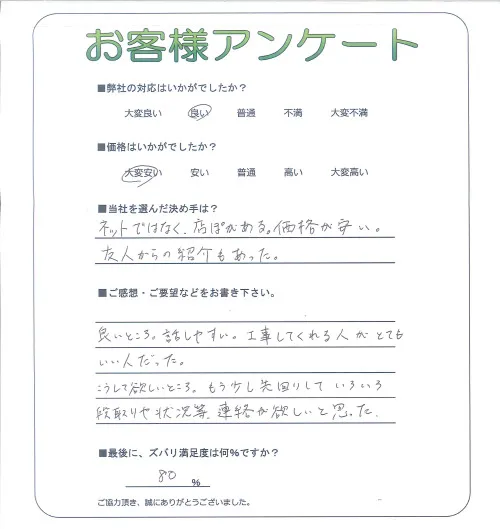 お客様アンケート
■弊社の対応はいかがでしたか？
大変良い 良い 普通 不満 大変不満
■価格はいかがでしたか？
大変安い 安い 普通 高い 大変高い
■当社を選んだ決め手は？
ネットではなく、店ぽがある。価格が安い。
友人からの紹介もあった。
■ご感想・ご要望などをお書き下さい。
良いところ。話しやすい。工事してくれる人がとても
いい人だった。
こうして欲しいところ。もう少し先回りして いろいろ
段取りや状況等、連絡が欲しいと思った。
■最後に、ズバリ満足度は何％ですか？
80 %
ご協力頂き、誠にありがとうございました。